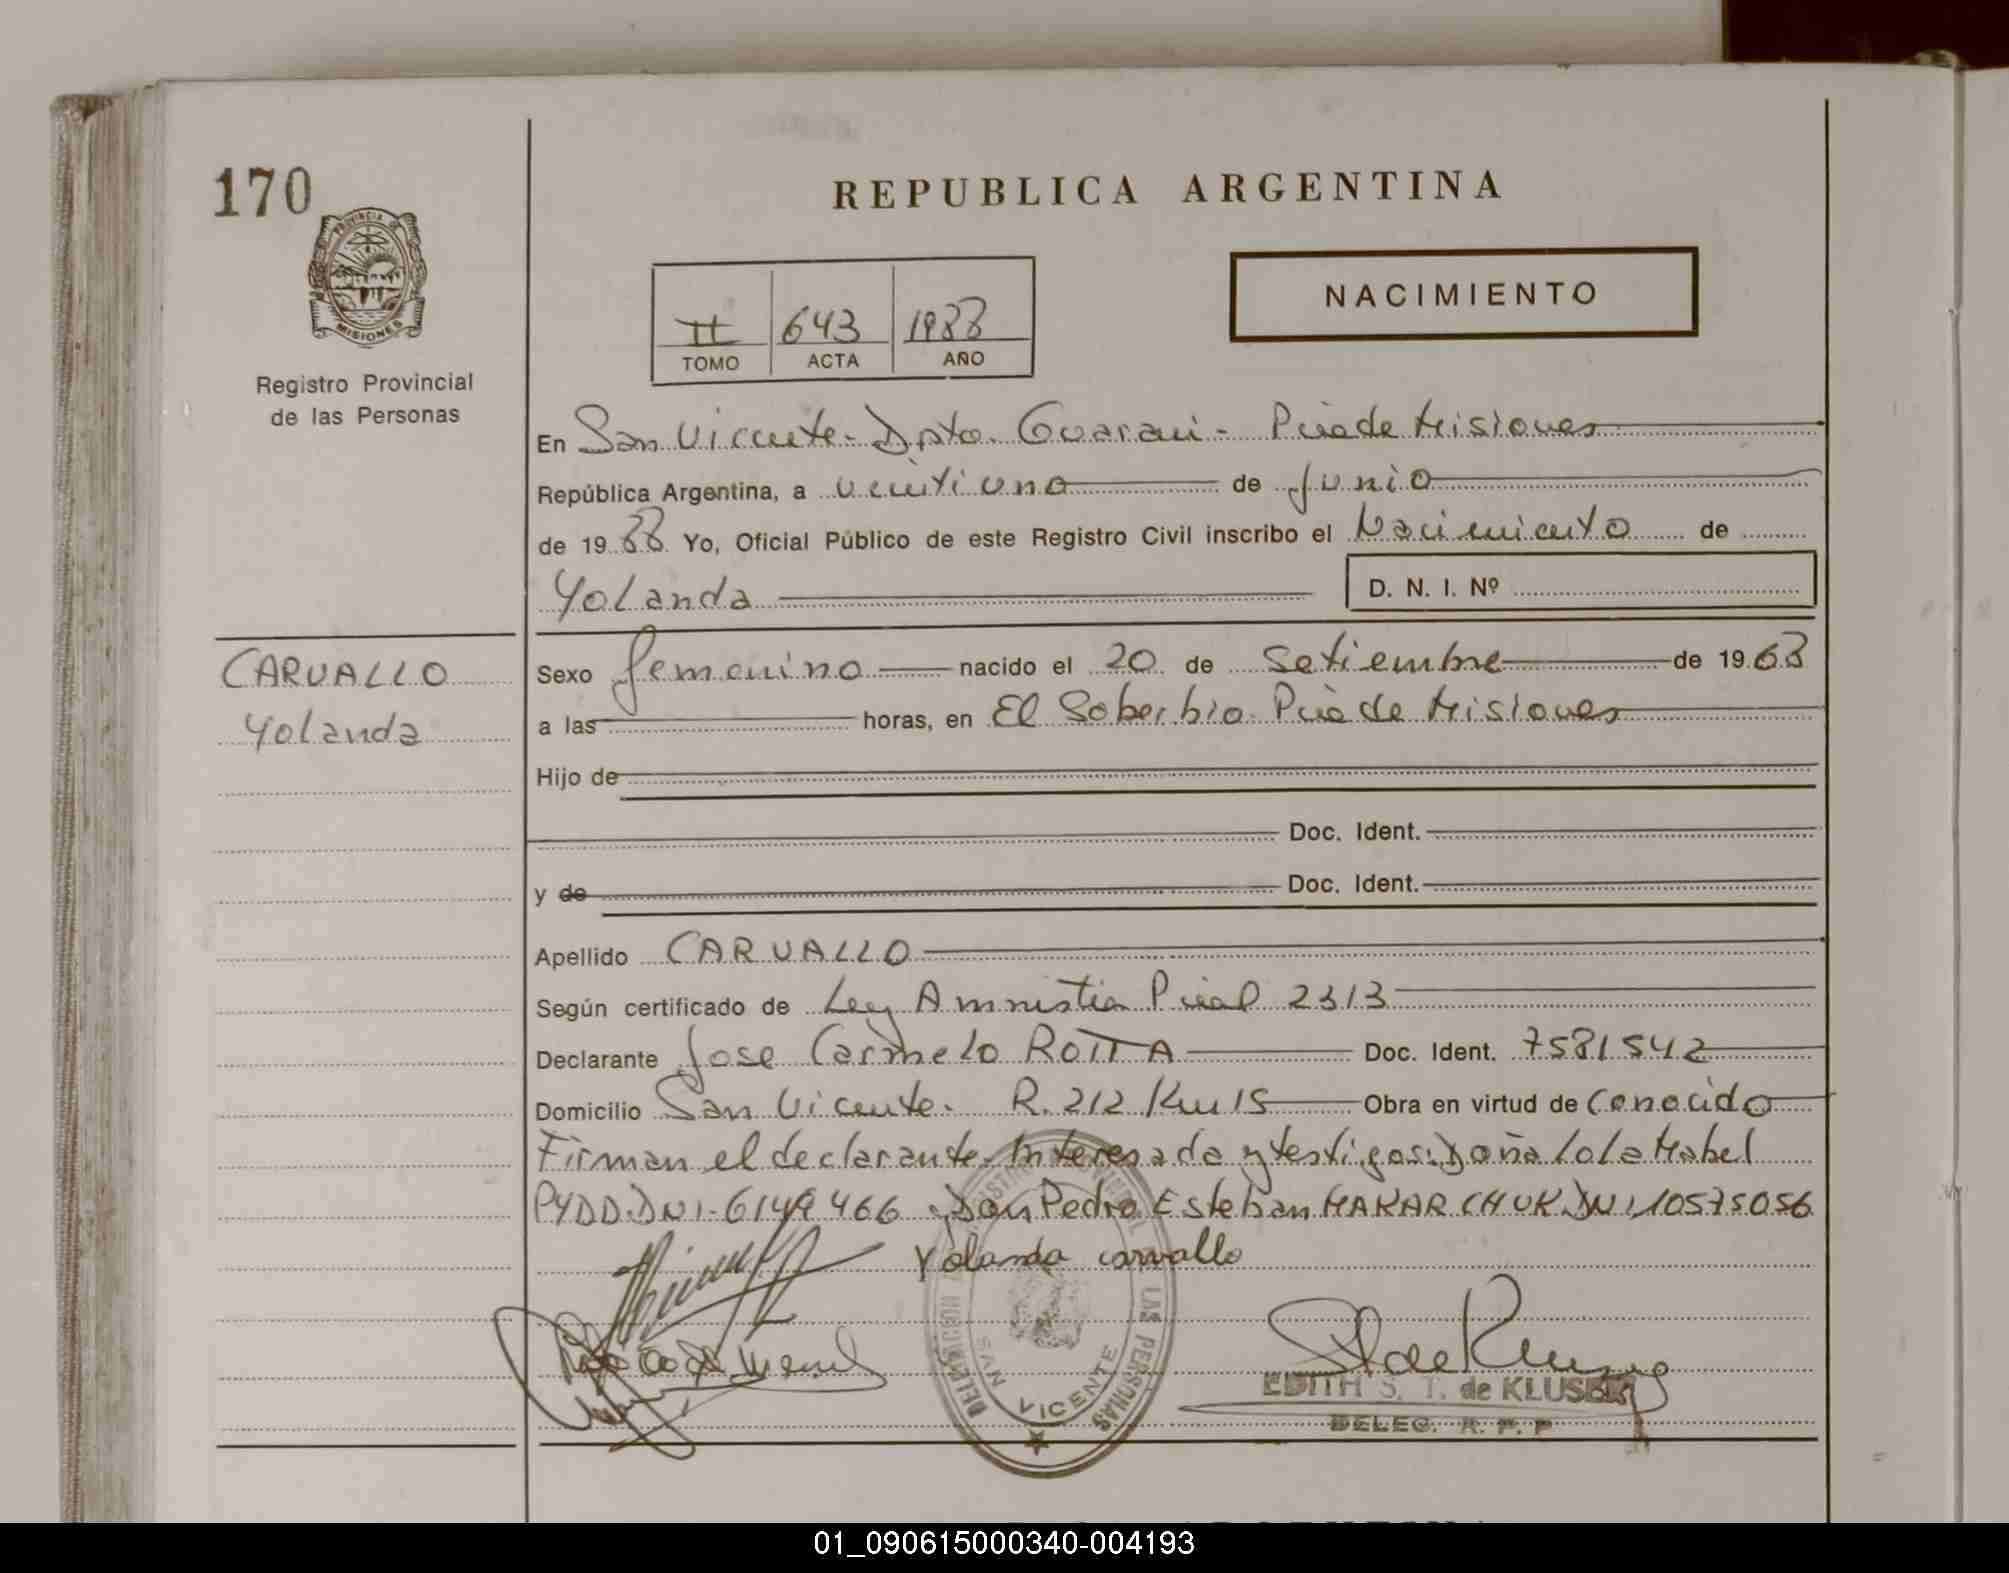 170
PROVINCIA DE
MISIONES
Registro Provincial
de las Personas
REPUBLICA ARGENTINA
II 643 1988
TOMO ACTA AÑO
NACIMIENTO
En San Vicente - Dpto. Guarani - Pcia de Misiones
República Argentina, a veintiuno de Junio
de 1988 Yo, Oficial Público de este Registro Civil inscribo el Nacimiento de
Yolanda D. N. I. Nº
CARVALLO
Yolanda
Sexo femenino nacido el 20 de Setiembre de 1963
a las horas, en El Soberbio Pcia de Misiones
Hijo de
Doc. Ident.
y de Doc. Ident.
Apellido CARVALLO
Según certificado de Ley Amnistia Pcial 2313
Declarante Jose Carmelo ROTTA Doc. Ident. 7581542
Domicilio San Vicente. R. 212 Km 15 Obra en virtud de Conocido
Firman el declarante - Interesada y testigos: Doña Lola Mabel
PYDD. DNI - 6149466 - Don Pedro Esteban MAKARCHUK DNI 10575056
Yolanda carvallo
LAS PERSONAS
SAN VICENTE
EDITH S. T. de KLUSEK
DELEG. R. P. P
01_090615000340-004193